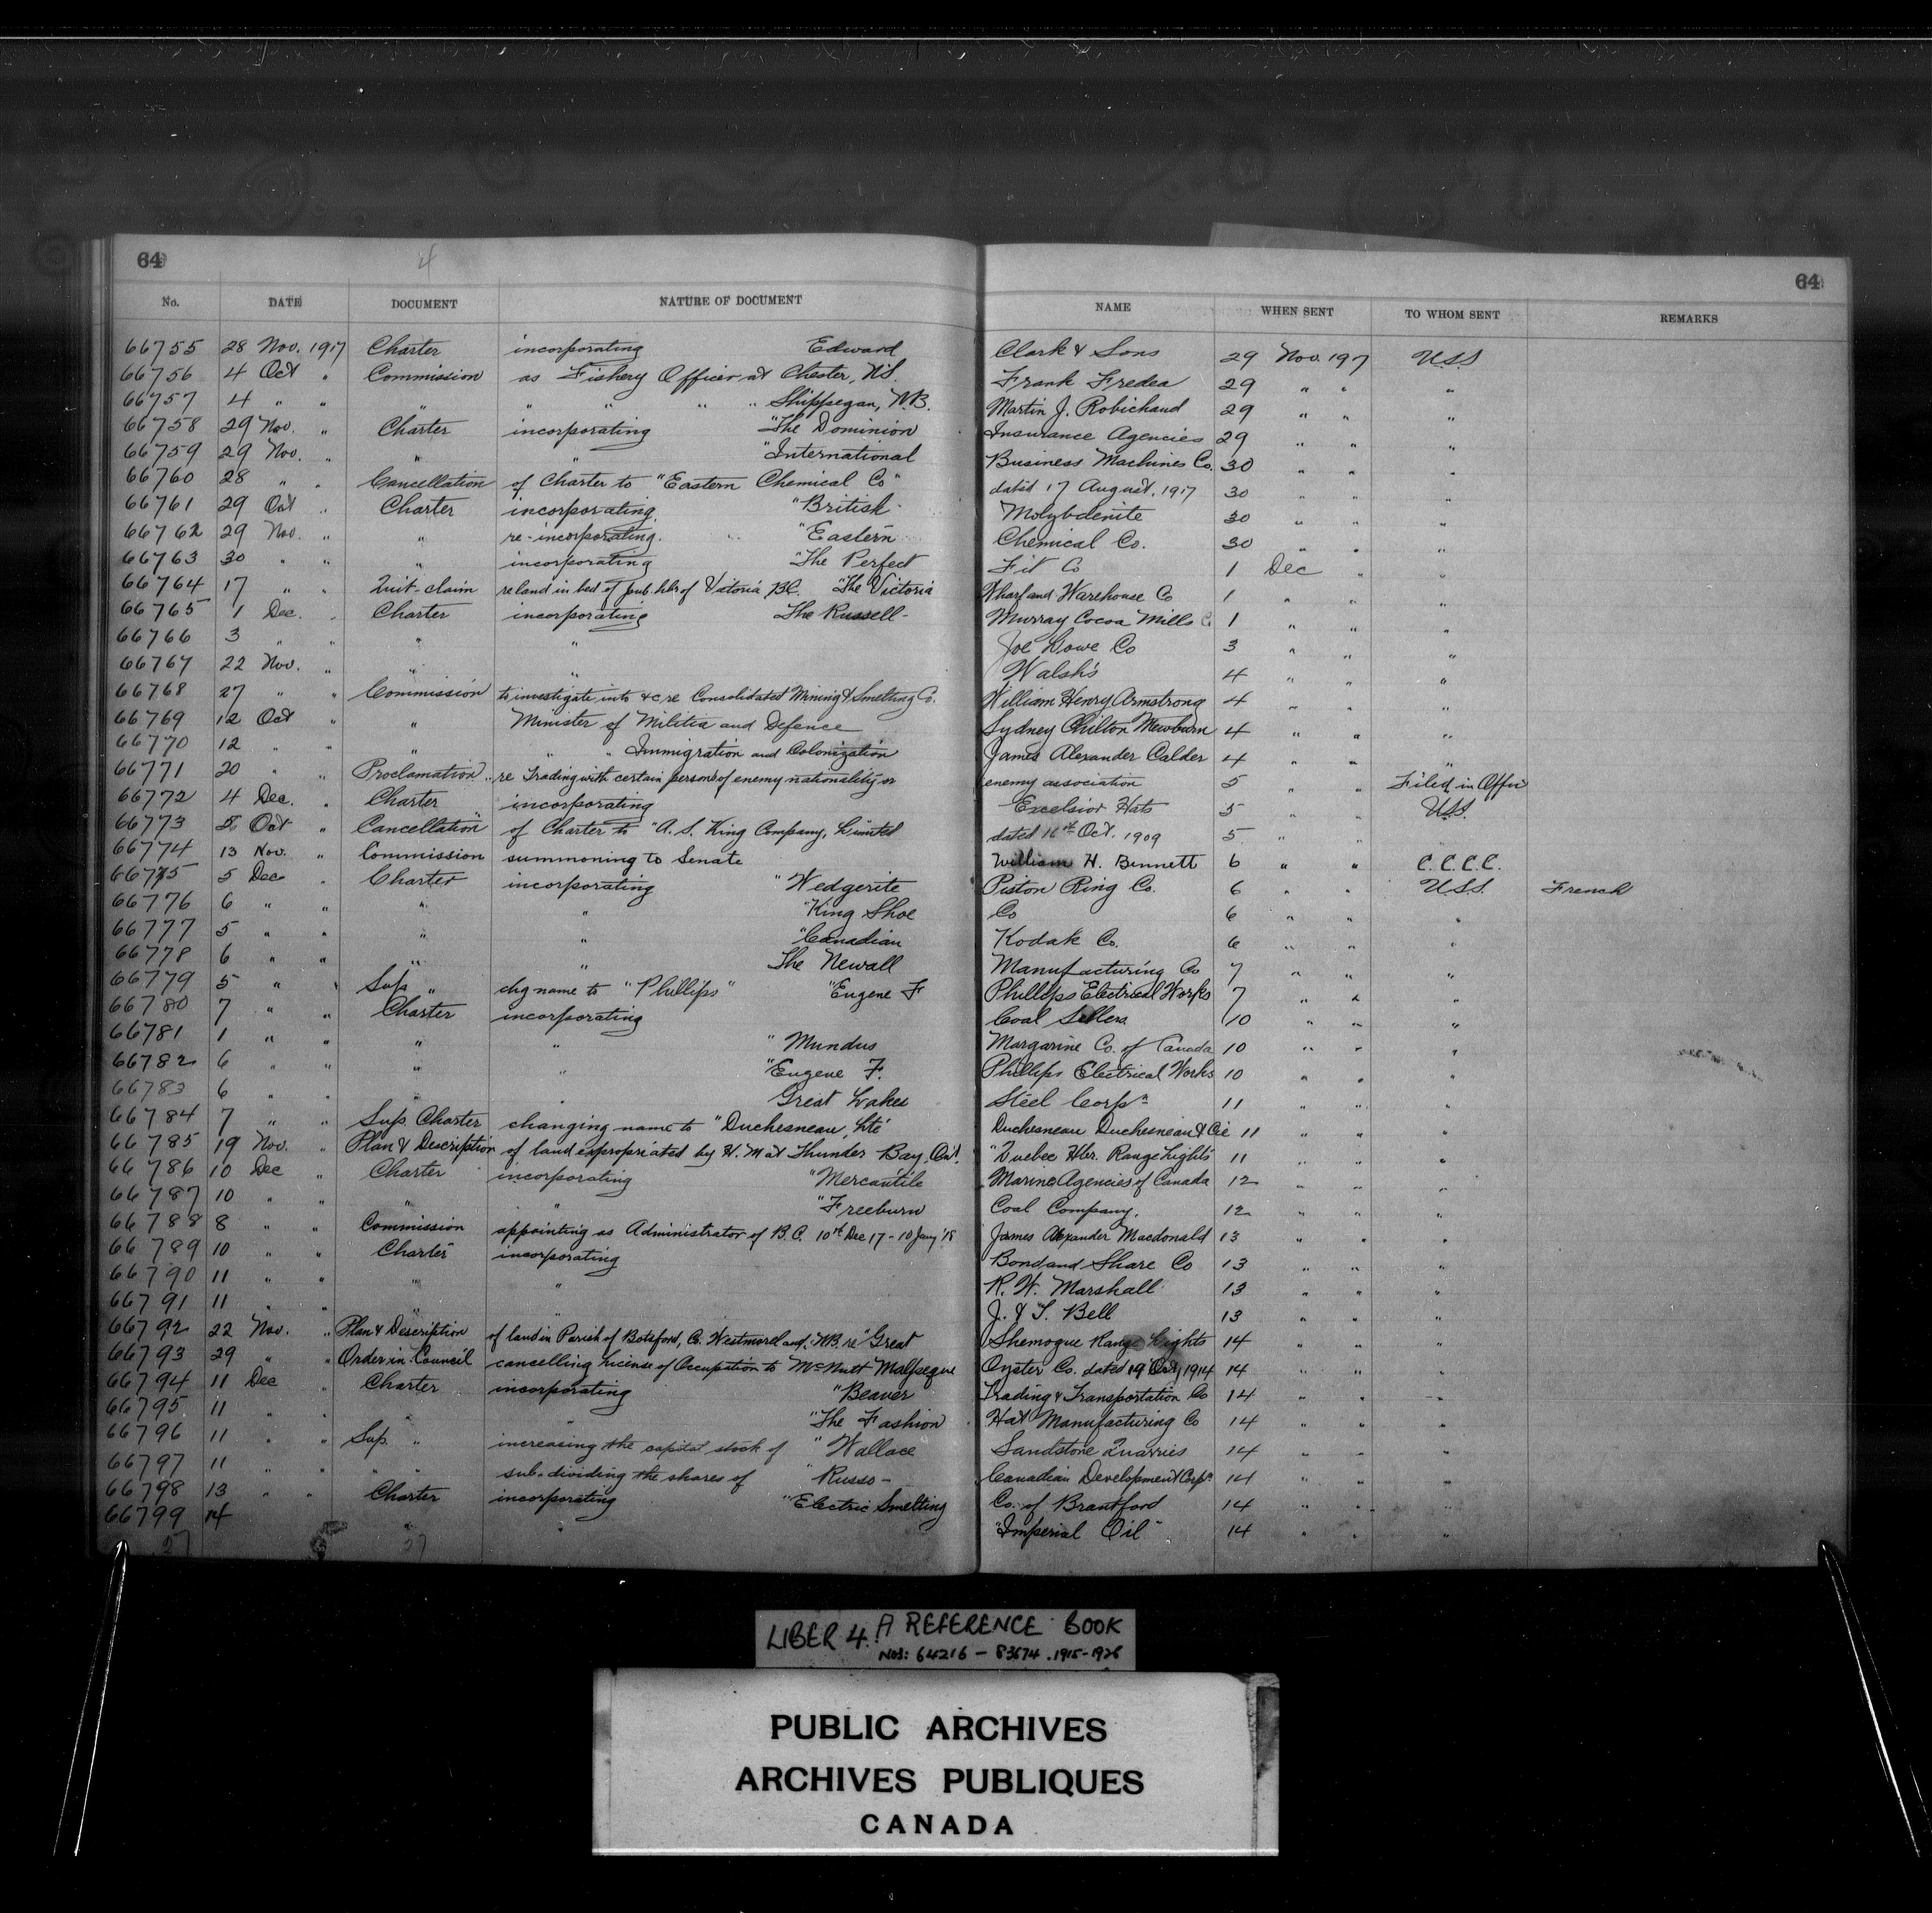 64 4 64
No. DATE DOCUMENT NATURE OF DOCUMENT NAME WHEN SENT TO WHOM SENT REMARKS
66755 28 Nov. 1917 Charter incorporating Edward Clark & Sons 29 Nov. 197 U.S.S.
66756 4 Oct " Commission as Fishery Officer at Chester, N.S. Frank Fredea 29 " " "
66757 4 " " " " " " " Shippegan, N.B. Martin J. Robichaud 29 " " "
66758 29 Nov. " Charter incorporating "The Dominion Insurance Agencies 29 " " "
66759 29 Nov. " " " "International Business Machines Co. 30 " " "
66760 28 " " Cancellation of Charter to "Eastern Chemical Co" dated 17 August, 1917 30 " " "
66761 29 Oct " Charter incorporating "British Molybdenite 30 " " "
66762 29 Nov. " " re-incorporating. "Eastern Chemical Co. 30 " " "
66763 30 " " " incorporating "The Perfect Fit Co 1 Dec " "
66764 17 " " Quit-claim re land in bed of pub. hbr of Victoria B.C. "The Victoria Wharf and Warehouse Co 1 " " "
66765 1 Dec. " Charter incorporating The Russell- Murray Cocoa Mills C. 1 " " "
66766 3 " " " " Joe Lowe Co 3 " " "
66767 22 Nov. " " " Walsh's 4 " " "
66768 27 " " Commission to investigate into &c re Consolidated Mining & Smelting Co. William Henry Armstrong 4 " " "
66769 12 Oct " " Minister of Militia and Defence Sydney Chilton Mewburn 4 " " "
66770 12 " " " " " Immigration and Colonization James Alexander Calder 4 " " "
66771 20 " " Proclamation re Trading with certain persons of enemy nationality or enemy association 5 " " Filed in Office
66772 4 Dec. " Charter incorporating Excelsior Hats 5 " " U.S.S.
66773 5 Oct " Cancellation of Charter to "A. S. King Company, Limited dated 16th Oct. 1909 5 " " "
66774 13 Nov. " Commission summoning to Senate William H. Bennett 6 " " C.C.C.C.
66775 5 Dec " Charter incorporating "Wedgerite Piston Ring Co. 6 " " U.S.S. French
66776 6 " " " " "King Shoe Co 6 " " "
66777 5 " " " " "Canadian Kodak Co. 6 " " "
66778 6 " " " " The Newall Manufacturing Co 7 " " "
66779 5 " " Sup " chg name to "Phillips" "Eugene F Phillips Electrical Works 7 " " "
66780 7 " " Charter incorporating Coal Sellers 10 " " "
66781 1 " " " " "Mundus Margarine Co. of Canada 10 " " "
66782 6 " " " " "Eugene F. Phillips Electrical Works 10 " " "
66783 6 " " " " Great Lakes Steel Corpn 11 " " "
66784 7 " " Sup. Charter changing name to "Duchesneau, Ltée Duchesneau Duchesneau & Cie 11 " " "
66785 19 Nov. " Plan & Description of land expropriated by H. M at Thunder Bay, Ont. "Quebec Hbr. Range Lights 11 " " "
66786 10 Dec " Charter incorporating "Mercantile Marine Agencies of Canada 12 " " "
66787 10 " " " " "Freeburn Coal Company. 12 " " "
66788 8 " " Commission appointing as Administrator of B.C. 10th Dec 17 - 10 Jany '18 James Alexander Macdonald 13 " " "
66789 10 " " Charter incorporating Bond and Share Co 13 " " "
66790 11 " " " " R. W. Marshall 13 " " "
66791 11 " " " " J. & T. Bell 13 " " "
66792 22 Nov. " Plan & Description of land in Parish of Botsford, Co. Westmoreland, N.B. re "Great Shemogue Range Lights 14 " " "
66793 29 " " Order in Council cancelling License of Occupation to McNutt Malpeque Oyster Co. dated 19 Oct, 1914 14 " " "
66794 11 Dec " Charter incorporating "Beaver Trading & Transportation Co 14 " " "
66795 11 " " " " "The Fashion Hat Manufacturing Co 14 " " "
66796 11 " " Sup. " increasing the capital stock of "Wallace Sandstone Quarries 14 " " "
66797 11 " " " " sub-dividing the shares of "Russo- Canadian Development Corpn 14 " " "
66798 13 " " Charter incorporating "Electric Smelting Co. of Brantford 14 " " "
66799 14 " " "Imperial Oil" 14 " " "
27 27
LIBER 4. A REFERENCE BOOK
NOS: 64216 - 83574 . 1915-1926
PUBLIC ARCHIVES
ARCHIVES PUBLIQUES
CANADA